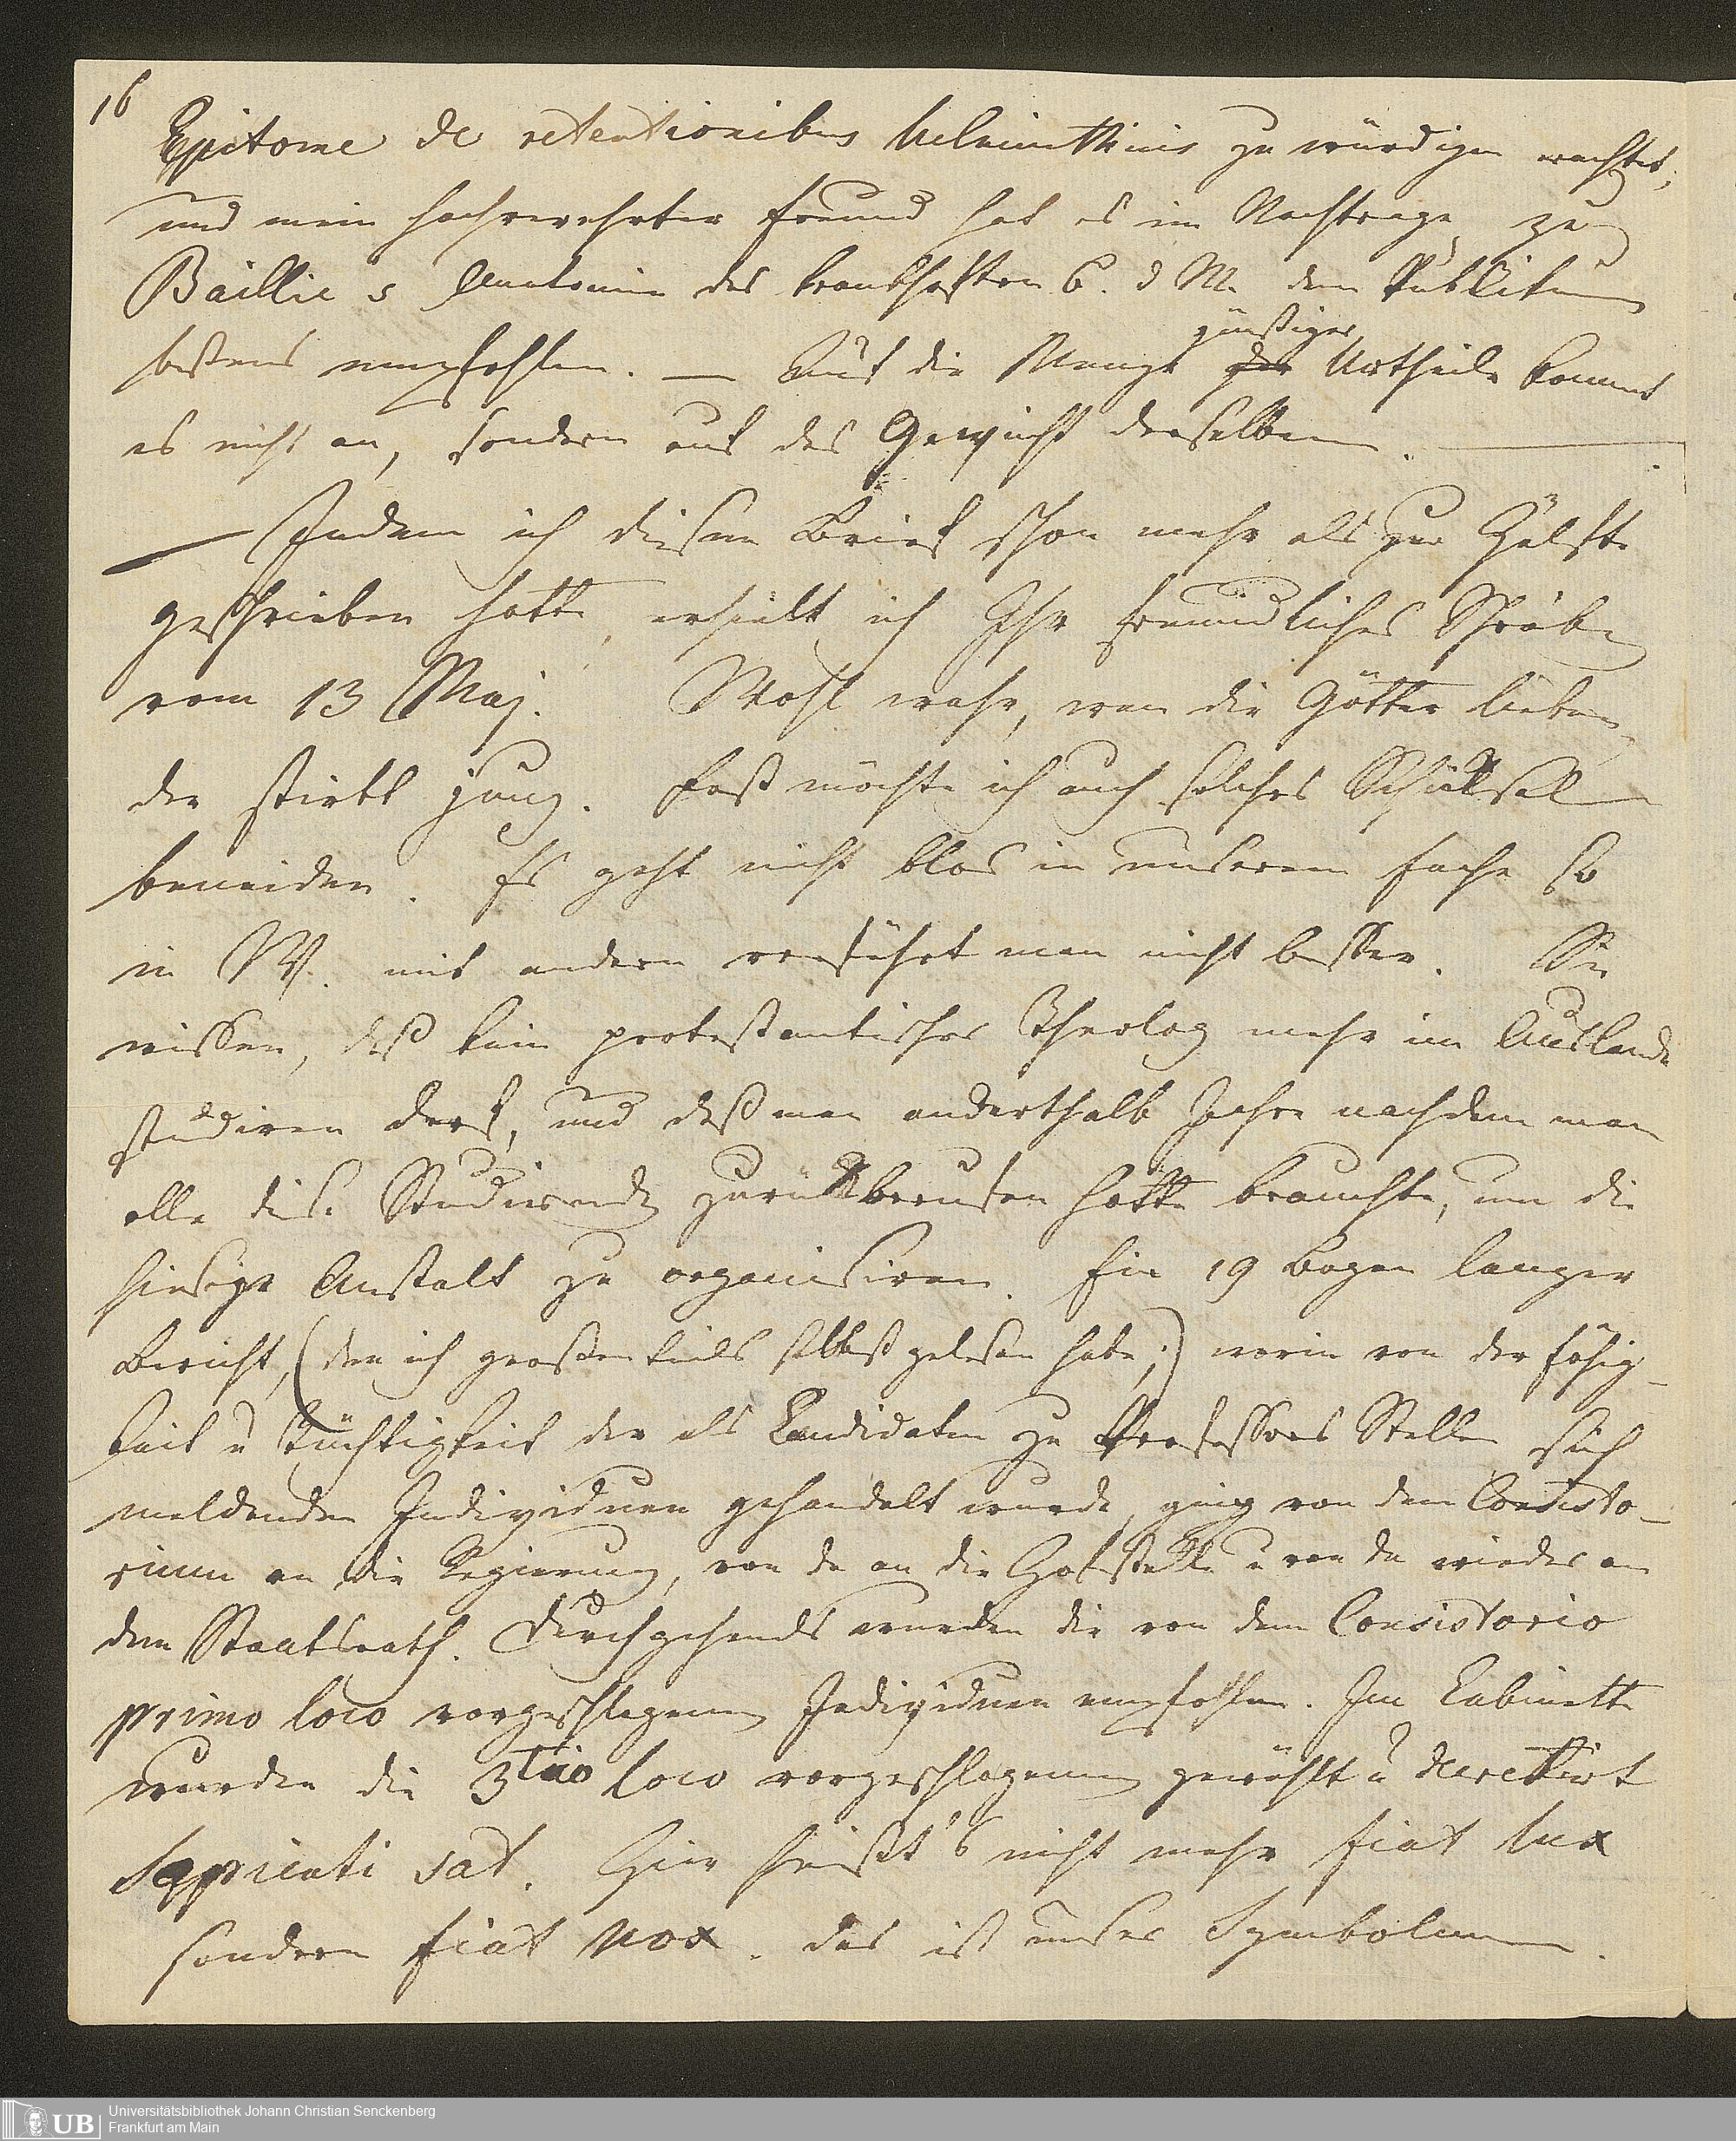 16
Epitome de retentionibus helminthinis zu würdigen erachtet,
und mein hochverehrter Freund hat es im Nachtrage zu
Baillie's Anatomie des krankhaften B. d M. dem Publikum
bestens empfohlen. — Auf die Menge günstiger Urtheile kommt
es nicht an, sondern auf das Gewicht derselben. —
— Indem ich diesen Brief schon mehr als zur Hälfte
geschrieben hatte, erhielt ich Ihr freundliches Schreiben
vom 13 Maj. Wohl wahr, wen die Götter lieben,
der stirbt jung. Fast möchte ich auch solches Schicksal
beneiden. Es geht nicht blos in unserem Fache so
in W. mit andern verfährt man nicht besser. Sie
wissen, daß kein protestantischer Theolog mehr im Auslande
studiren darf, und daß man anderthalb Jahre nachdem man
alle diese Studirende zurückberufen hatte brauchte, um die
hiesige Anstalt zu organisiren. Ein 19 Bogen langer
Bericht, (den ich großentheils selbst gelesen habe;) worin von der Fähig-
keit u Tüchtigkeit der als Candidaten zu Professors Stellen sich
meldenden Individuen gehandelt wurde, ging von dem Consisto-
rium an die Regierung, von da an die Hofstelle u von da wieder an
den Staatsrath. Durchgehends wurden die von dem Consistorio
primo loco vorgeschlagenen Individuen empfohlen. Im Cabinette
wurden die 3tio loco vorgeschlagenen gewählt u decretirt
Sapienti sat. Hier heißt's nicht mehr fiat lux
sondern fiat nox. das ist unser Symbolum.
UB
Universitätsbibliothek Johann Christian Senckenberg
Frankfurt am Main